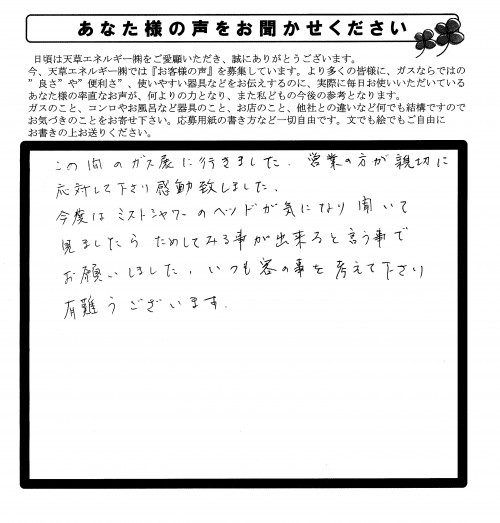 あなた様の声をお聞かせください
日頃は天草エネルギー㈱をご愛顧いただき、誠にありがとうございます。
今、天草エネルギー㈱では『お客様の声』を募集しています。より多くの皆様に、ガスならではの
”良さ”や”便利さ”、使いやすい器具などをお伝えするのに、実際に毎日お使いいただいている
あなた様の率直なお声が、何よりの力となり、また私どもの今後の参考となります。
ガスのこと、コンロやお風呂など器具のこと、お店のこと、他社との違いなど何でも結構ですので
お気づきのことをお寄せ下さい。応募用紙の書き方など一切自由です。文でも絵でもご自由に
お書きの上お送りください。
この間のガス展に行きました。営業の方が親切に
応対して下さり感動致しました。
今度はミストシャワーのヘッドが気になり聞いて
見ましたらためしてみる事が出来ると言う事で
お願いしました。いつも客の事を考えて下さり
有難うございます。